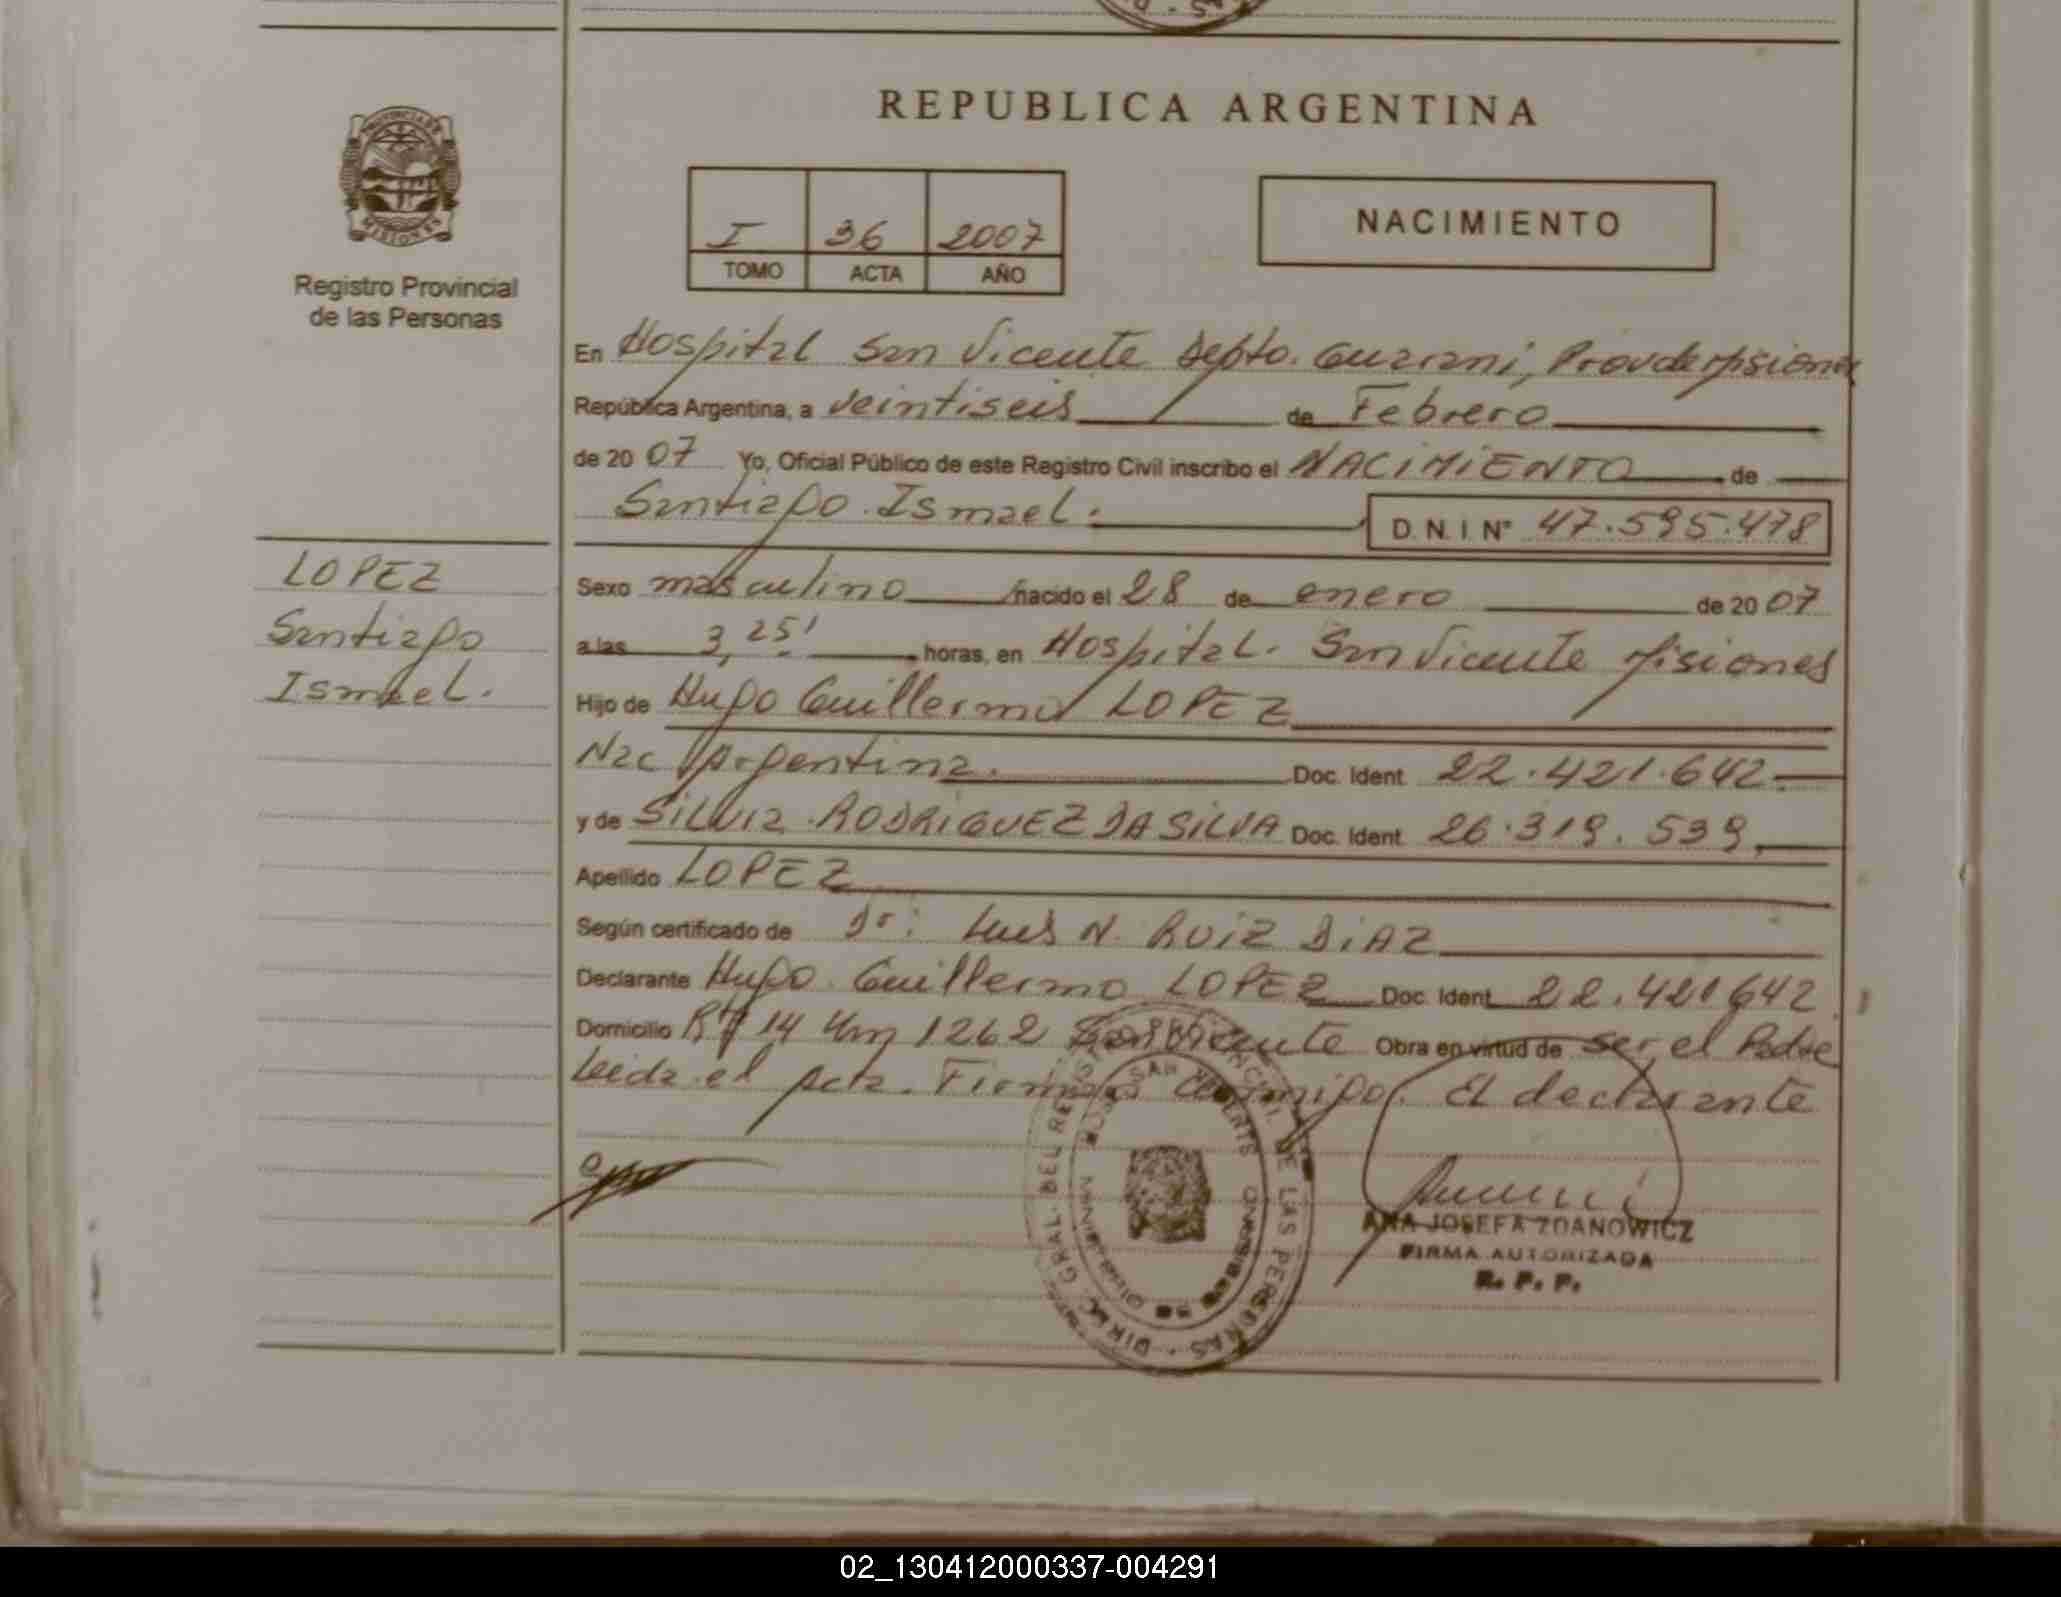 REPUBLICA ARGENTINA
PROVINCIA DE
MISIONES
Registro Provincial
de las Personas
I 36 2007
TOMO ACTA AÑO
NACIMIENTO
En Hospital San Vicente Depto. Guarani, Prov de Misiones
República Argentina, a veintiseis de Febrero
de 20 07 Yo, Oficial Público de este Registro Civil inscribo el NACIMIENTO de
Santiago Ismael. D.N.I. N° 47.595.478
LOPEZ
Santiago
Ismael.
Sexo masculino nacido el 28 de enero de 20 07
a las 3,25' horas, en Hospital. San Vicente Misiones
Hijo de Hugo Guillermo LOPEZ
Nac Argentina. Doc. Ident. 22.421.642.
y de SILVIA RODRIGUEZ DA SILVA Doc. Ident. 26.319.539,
Apellido LOPEZ
Según certificado de Dr: Luis N. RUIZ DIAZ
Declarante Hugo Guillermo LOPEZ Doc. Ident. 22.421642
Domicilio Rta 14 Km 1262 San Vicente Obra en virtud de ser el Padre
Leida el acta. Firma conmigo. El declarante
DIREC. GRAL. DEL REGISTRO PROVINCIAL DE LAS PERSONAS
ANA JOSEFA ZDANOWICZ
FIRMA AUTORIZADA
R. P. P.
02_130412000337-004291